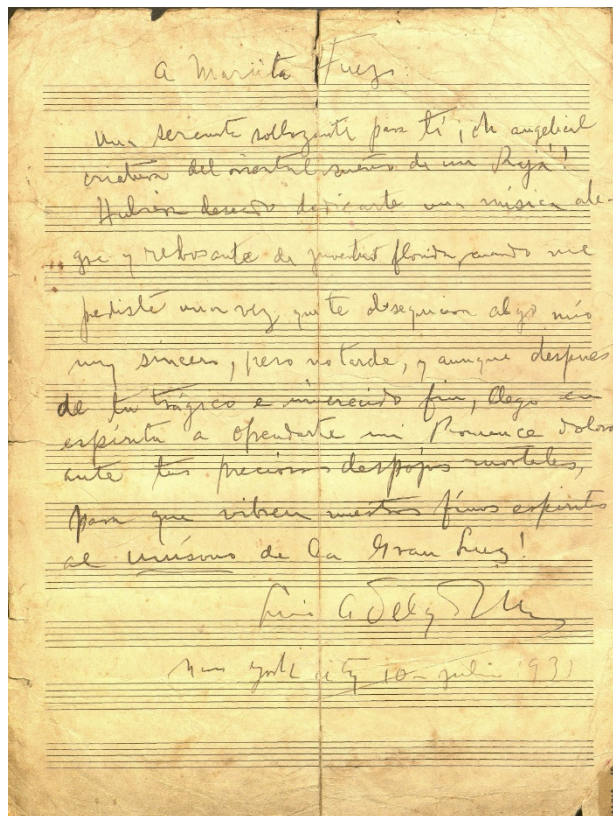 A Mariita Huezo.
Una serenata sollozante para tí, ¡oh angelical
criatura del oriental sueño de un Rajá!
Hubiera deseado dedicarte una música ale-
gre y rebosante de juventud florida, cuando me
pediste una vez, que te obsequiara algo mío
muy sincero, pero no tarde, y aunque despues
de tu trágico e inmerecido fin, llego en
espíritu a ofrendarte mi Romance doloro
ante tus preciosos despojos mortales,
para que vibren nuestros finos espiritus
al unísono de la Gran Luz!
Luis A Delg
New York City 10 - julio 931